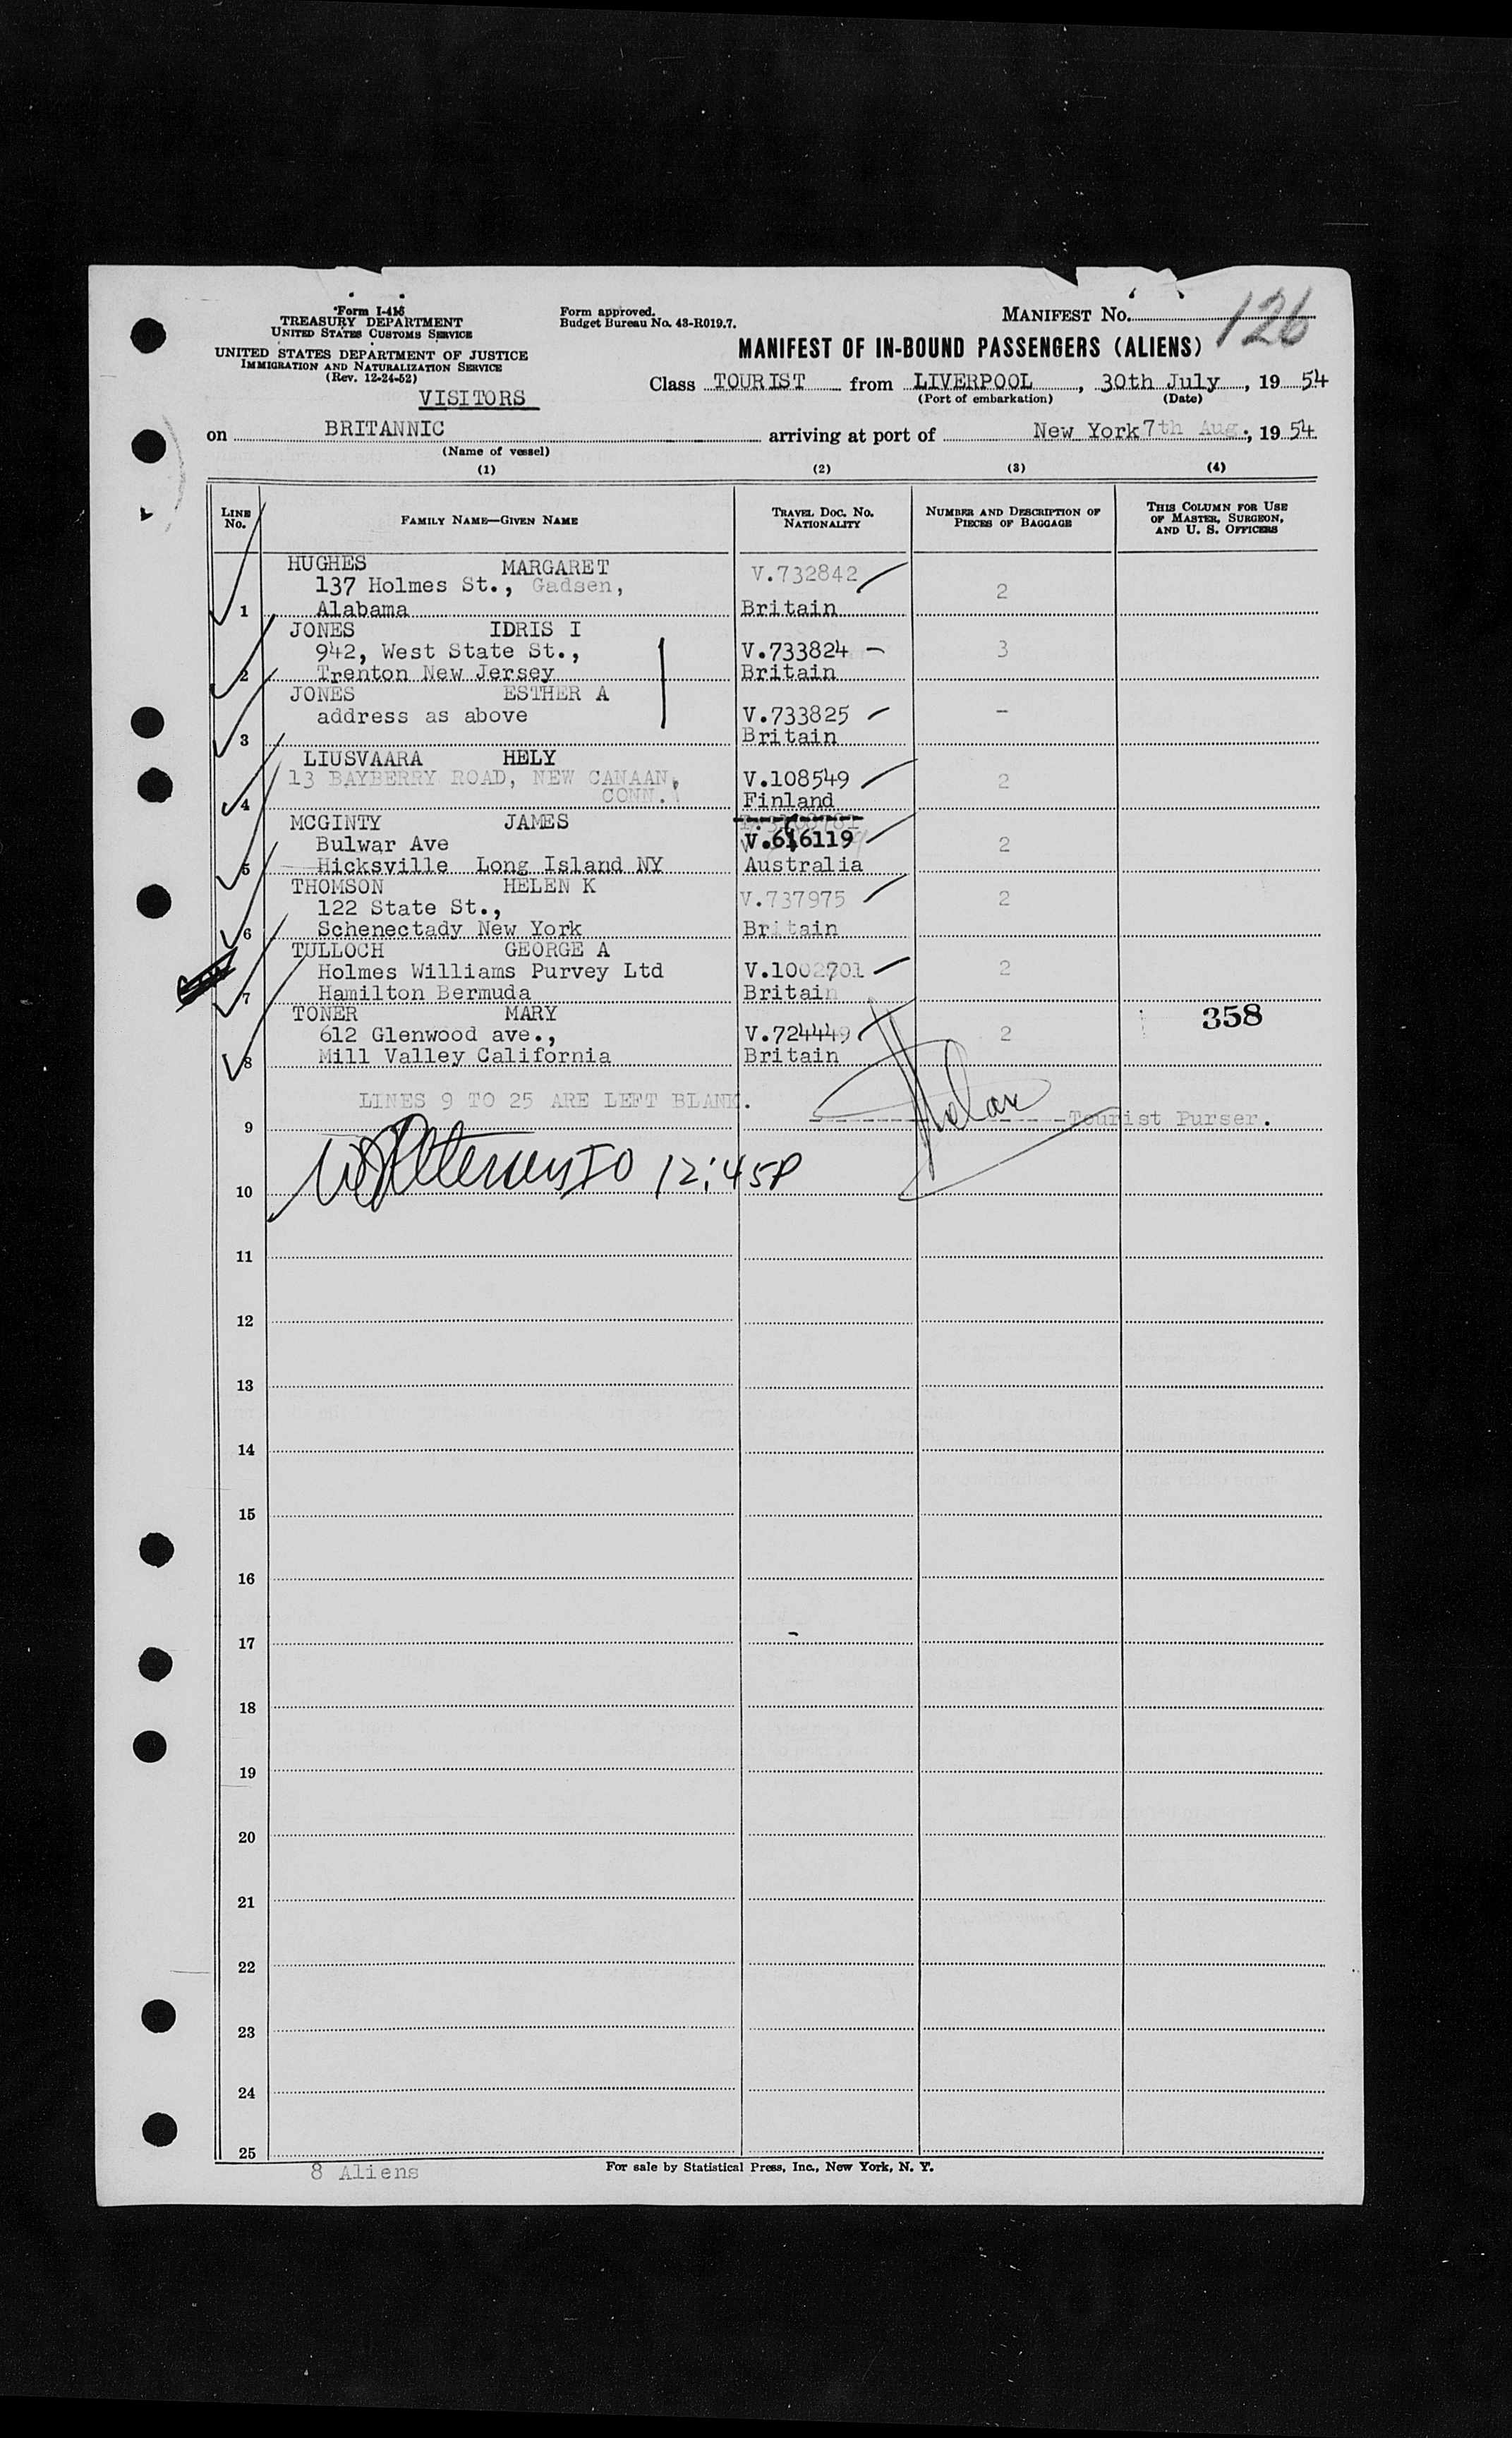 Form I-415
TREASURY DEPARTMENT
UNITED STATES CUSTOMS SERVICE
UNITED STATES DEPARTMENT OF JUSTICE
IMMIGRATION AND NATURALIZATION SERVICE
(Rev. 12-24-52)
VISITORS
Form approved.
Budget Bureau No. 43-R019.7.
MANIFEST No. 126
MANIFEST OF IN-BOUND PASSENGERS (ALIENS)
Class TOURIST from LIVERPOOL, 30th July, 19 54
(Port of embarkation) (Date)
on BRITANNIC arriving at port of New York 7th Aug., 19 54
(Name of vessel)
(1) (2) (3) (4)
LINE No. FAMILY NAME—GIVEN NAME TRAVEL DOC. NO. NATIONALITY NUMBER AND DESCRIPTION OF PIECES OF BAGGAGE THIS COLUMN FOR USE OF MASTER, SURGEON, AND U. S. OFFICERS
HUGHES MARGARET V.732842
137 Holmes St., Gadsen, 2
1 Alabama Britain
JONES IDRIS I
942, West State St., V.733824 3
2 Trenton New Jersey Britain
JONES ESTHER A
address as above V.733825 -
3 Britain
LIUSVAARA HELY
13 BAYBERRY ROAD, NEW CANAAN, V.108549 2
CONN.
4 Finland
MCGINTY JAMES
Bulwar Ave V.616119 2
5 Hicksville Long Island NY Australia
THOMSON HELEN K V.737975 2
122 State St.,
6 Schenectady New York Britain
TULLOCH GEORGE A
Holmes Williams Purvey Ltd V.1002701 2
7 Hamilton Bermuda Britain
TONER MARY 358
612 Glenwood ave., V.724449 2
8 Mill Valley California Britain
LINES 9 TO 25 ARE LEFT BLANK.
9 Tourist Purser.
12:45P
10
11
12
13
14
15
16
17
18
19
20
21
22
23
24
25
8 Aliens
For sale by Statistical Press, Inc., New York, N. Y.